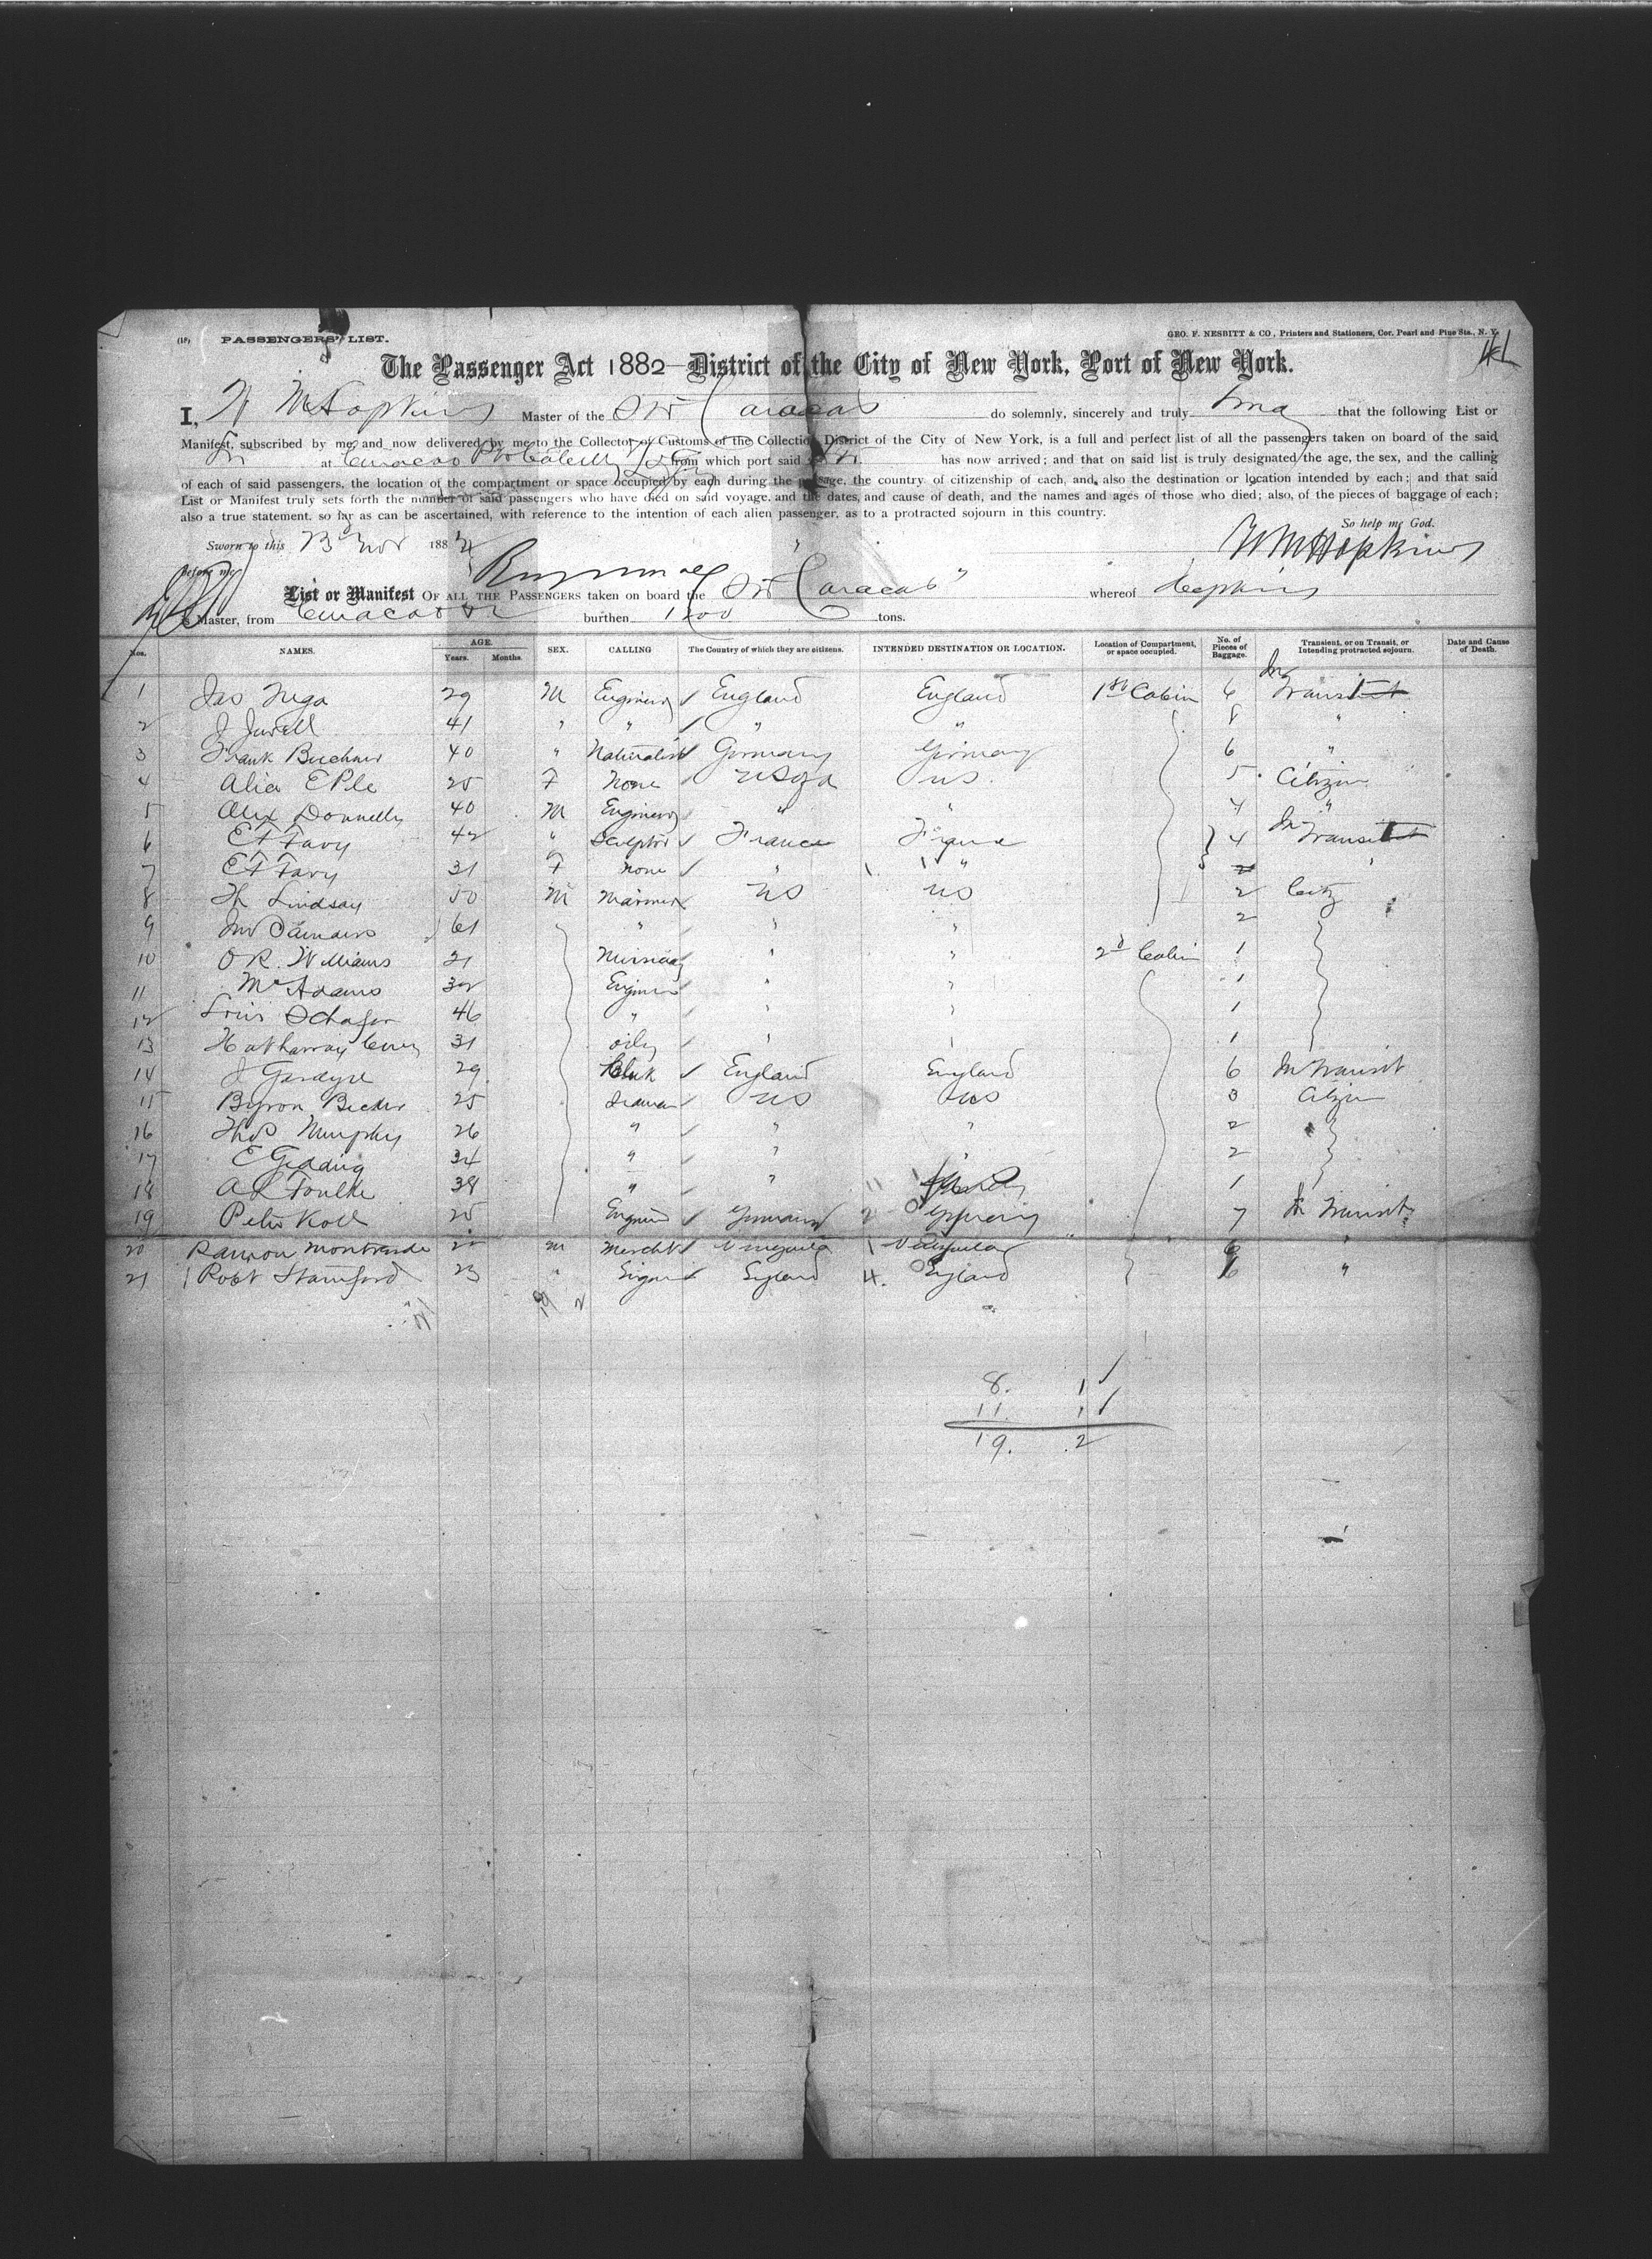 (18) PASSENGERS' LIST.
GEO. F. NESBITT & CO., Printers and Stationers, Cor. Pearl and Pine Sts., N. Y.
The Passenger Act 1882—District of the City of New York, Port of New York.
I, W M Hopkins Master of the Caracas do solemnly, sincerely and truly that the following List or
Manifest, subscribed by me, and now delivered by me to the Collector of Customs of the Collection District of the City of New York, is a full and perfect list of all the passengers taken on board of the said
at Curacao from which port said has now arrived; and that on said list is truly designated the age, the sex, and the calling
of each of said passengers, the location of the compartment or space occupied by each during the passage, the country of citizenship of each, and also the destination or location intended by each; and that said
List or Manifest truly sets forth the number of said passengers who have died on said voyage, and the dates, and cause of death, and the names and ages of those who died; also, of the pieces of baggage of each;
also a true statement, so far as can be ascertained, with reference to the intention of each alien passenger, as to a protracted sojourn in this country.
So help me God.
Sworn to this Nov 188
W M Hopkins
before me
List or Manifest OF ALL THE PASSENGERS taken on board the Caracas" whereof Hopkins
is Master, from Curacao burthen tons.
Nos. NAMES. AGE. Years. Months. SEX. CALLING The Country of which they are citizens. INTENDED DESTINATION OR LOCATION. Location of Compartment, or space occupied. No. of Pieces of Baggage. Transient, or on Transit, or Intending protracted sojourn. Date and Cause of Death.
1 Jas 29 M Engineer England England 1st Cabin 6 In Transit
2 J Jewell 41 " " " " 8 "
3 Frank 40 " Naturalist Germany Germany 6 "
4 25 F None US US 5 Citizen
5 Alex Donnelly 40 M Engineer " " 4 "
6 E F Favy 42 " Sculptor France France 4 In Transit
7 E F Favy 31 F None " " "
8 Th Lindsay 50 M Mariner US US 2 Citz
9 Jno Saunders 61 " " " 2
10 O R. Williams 21 " " 2d Cabin 1
11 McAdams 32 Engineer " " 1
12 Louis Schafer 46 " " " 1
13 Hathaway 31 " " 1
14 J 29 Clerk England England 6 In Transit
15 Byron 25 Seaman US US 3 Citizen
16 Thos Murphy 26 " " " 2
17 E Gedding 34 " " 2
18 A L Foulke 38 " " 1
19 Peter Koll 25 Engineer Germany Germany 7 In Transit
20 Ramon 22 M Mercht Venezuela Venezuela 6 "
21 Robt Stamford 23 " England England 6 "
8. 1
11. 1
19. 2